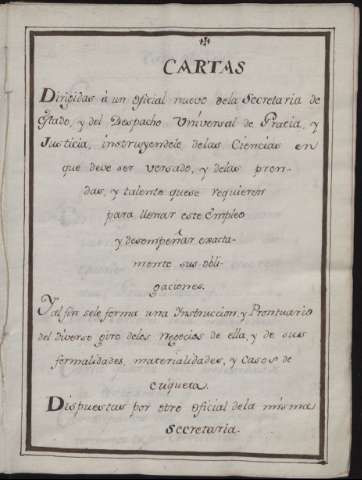 CARTAS
Dirigidas à un oficial nuevo dela Secretaria de
Estado, y del Despacho Universal de Gracia, y
Justicia, instruyendole delas Ciencias en
que deve ser versado, y delas pren-
das, y talento quese requieren
para llenar este Empleo
y desempeñar exacta-
mente sus obli-
gaciones.
Y al fin sele forma una Instruccion, y Prontuario
del diverso giro delos negocios de ella, y de sus
formalidades, materialidades, y casos de
etiqueta.
Dispuestas por otro oficial dela misma
Secretaria.